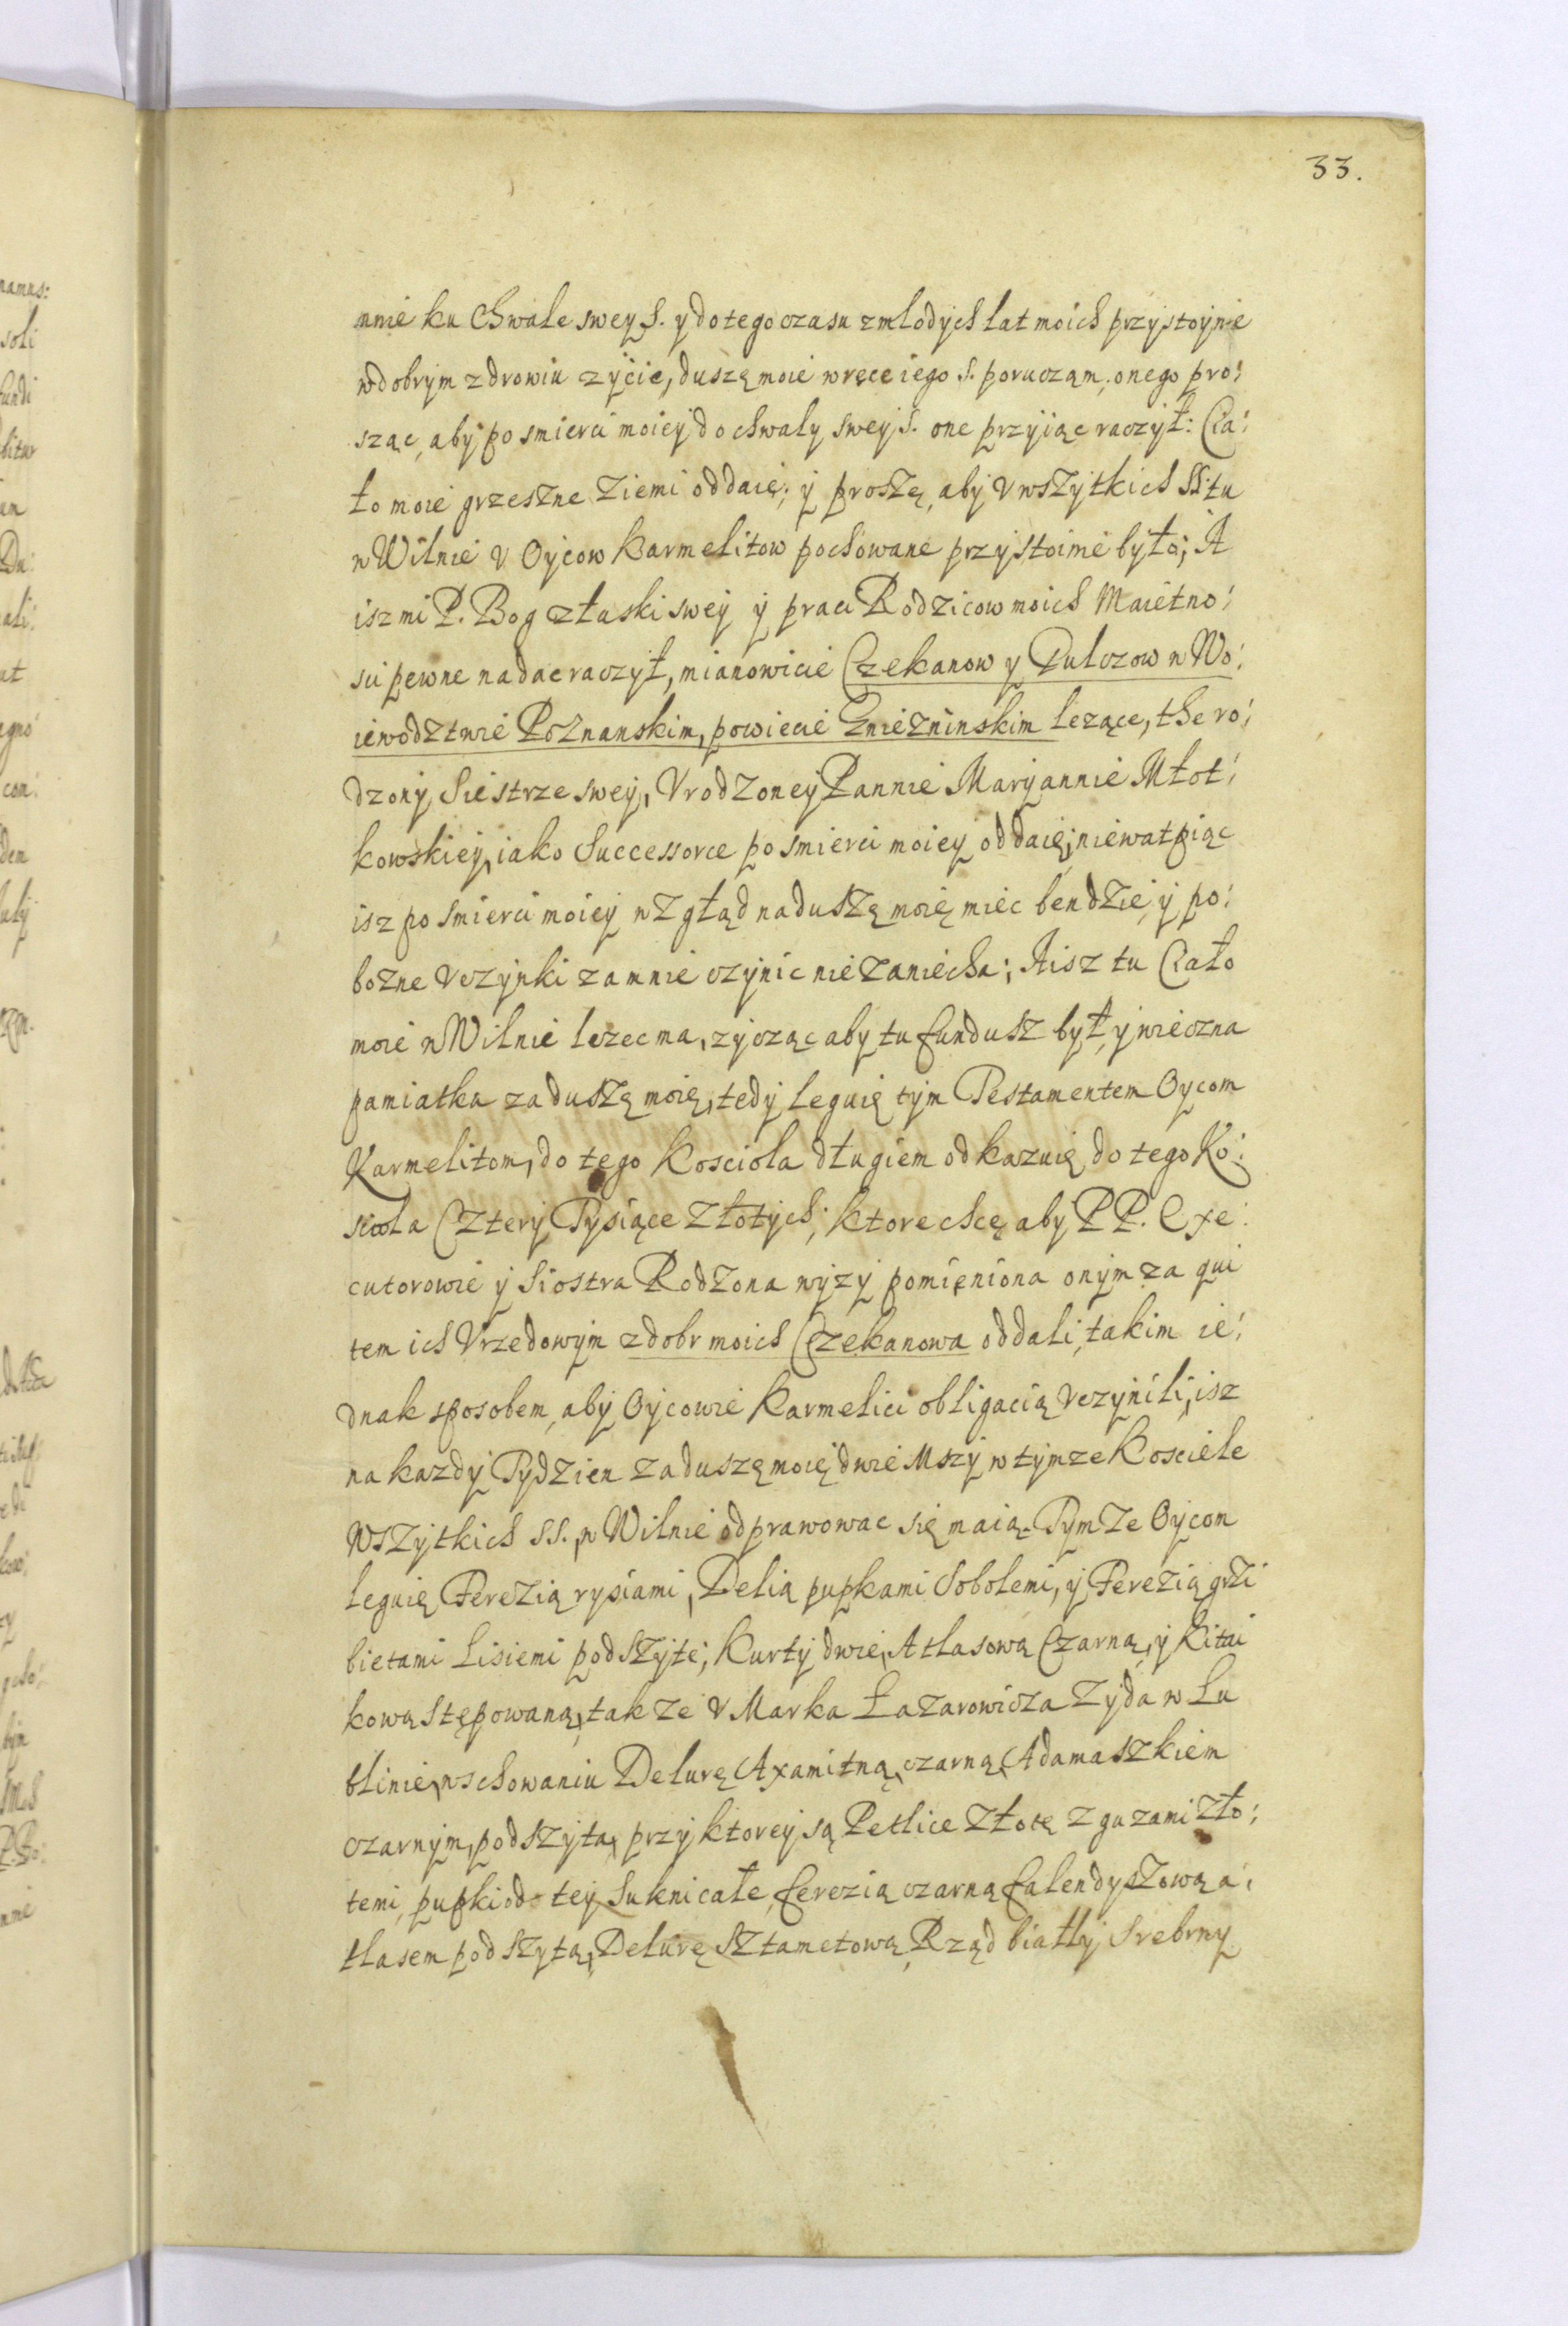 33.
mnie ku Chwale swey S. y do tego czasu z mlodych lat moich przystoynie
w dobrym zdrowiu zycie, duszę moie w ręce iego S. poruczam, onego pro:
sząc, aby po smierci moiey do chwaly swey S. one przyiąc raczył: Cia:
ło moie grzeszne Ziemi oddaię; y proszę, aby V wszytkich SS. tu
w Wilnie V Oycow Karmelitow pochowane przystoinie było; A
isz mi P. Bog z łaski swey y pracy Rodzicow moich Maietno:
sci pewne nadac raczył, mianowicie Czekanow y Dulczow w Wo:
iewodztwie Poznanskim, powiecie Gniezninskim lezące, the ro:
dzony Siestrze swey, Vrodzoney Pannie Maryannie Młot:
kowskiey, iako Successorce po smierci moiey oddaię; niewatpiąc
isz po smierci moiey wzgłąd na duszę moię miec bendzie, y po:
bozne Vczynki za mnie czynic nie zaniecha; A isz tu Ciało
moie w Wilnie lezec ma, zycząc aby tu fundusz był, y wieczna
pamiatka za duszę moię, tedy leguię tym Testamentem Oycom
Karmelitom, do tego Kosciola długiem odkazuię do tego Ko:
sciola Cztery Tysiące Złotych; ktore chcę aby P P. Exe:
cutorowie y Siostra Rodzona wyzy pomięniona onym za qui
tem ich Vrzedowym z dobr moich Czekanowa oddali, takim ie:
dnak sposobem, aby Oycowie Karmelici obligacią Vczynili, isz
na kazdy Tydzien za duszę moię dwie Mszy w tymze Kosciele
Wszytkich SS., w Wilnie odprawowac się maią. Tymze Oycom
leguię Ferezią rysiami, Delią pupkami Sobolemi, y Ferezią grzi
bietami Lisiemi podszyte; Kurty dwie, Atlasową Czarną, y Kitai
kową Stępowaną, takze V Marka Łazarowicza Zyda w Lu
blinie, w schowaniu Delurę Axamitną czarną, Adamaszkiem
czarnym, podszyta, przy ktorey są Petlice Złotę z guzami Zło:
temi, pupki od tey Sukni całe, ferezią czarną falendyszową a:
tlasem podszytą, Delurę Sztametową, Rząd białly Srebrny